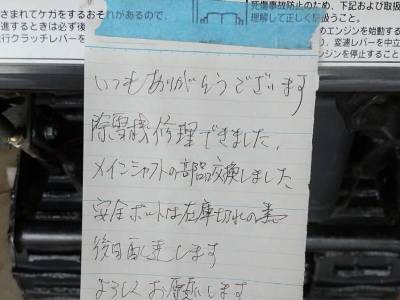 さまれてケガをするおそれがあるので、
進するときは必ず後
行クラッチレバーを
死傷事故防止のため、下記および取扱
理解して正しく取扱うこと。
のためエンジンを始動する
り、変速レバーを中立
エンジンを停止すること
いつもありがとうございます
除雪機修理できました。
メインシャフトの部品交換しました
安全ボルトは在庫切れの為
後日配達します
よろしくお願いします